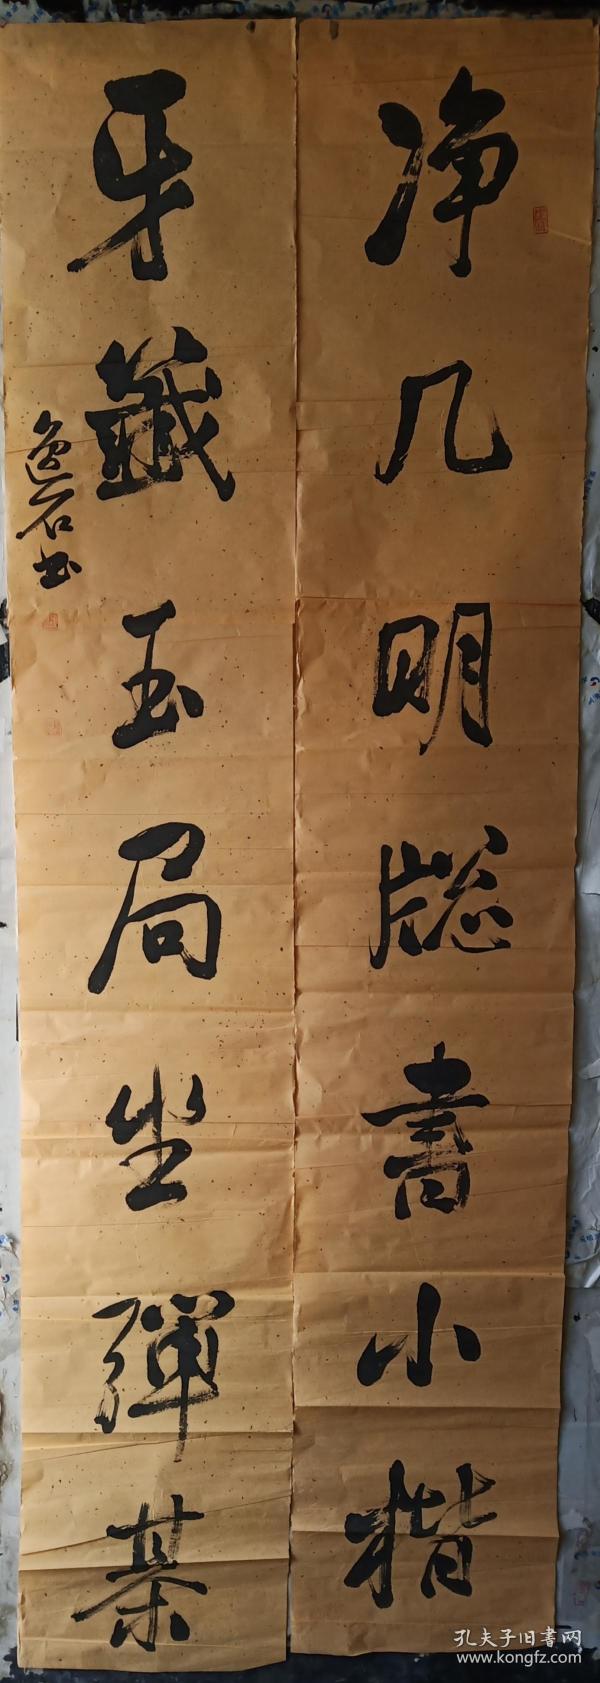 净几明牕書小楷
牙籖玉局坐彈棊
逸石书
孔夫子旧書网
www.kongfz.com